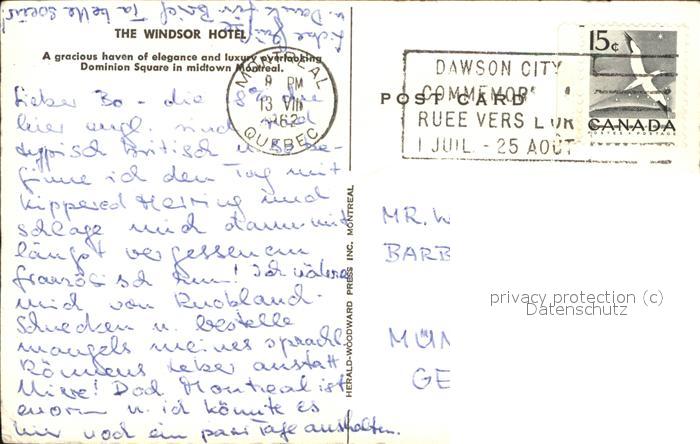 u. Dank für Brief Ta belle soeur!
Liebe Grüße
THE WINDSOR HOTEL
A gracious haven of elegance and luxury overlooking
Dominion Square in midtown Montreal.
Lieber Bo - die 8% die
hier engl. sind sind
typisch britisch u. so be-
ginne ich den Tag mit
Kippered Herring und
schlage mich dann mit
längst vergessenem
französisch rum! Ich nähre
mich von Knobland-
Schnecken u. bestelle
mangels meines sprachl.
Könnens Leber anstatt
Niere! Doch Montreal ist
enorm u. ich könnte es
hier noch ein paar Tage aushalten.
MONTREAL
9 PM
13 VIII
1962
QUEBEC
DAWSON CITY
COMMEMOR
RUEE VERS L'OR
1 JUIL - 25 AOÛT
POST CARD
15¢
CANADA
POSTES POSTAGE
HERALD-WOODWARD PRESS INC. MONTREAL
MR. W
BARB
MÜN
GE
privacy protection (c)
Datenschutz